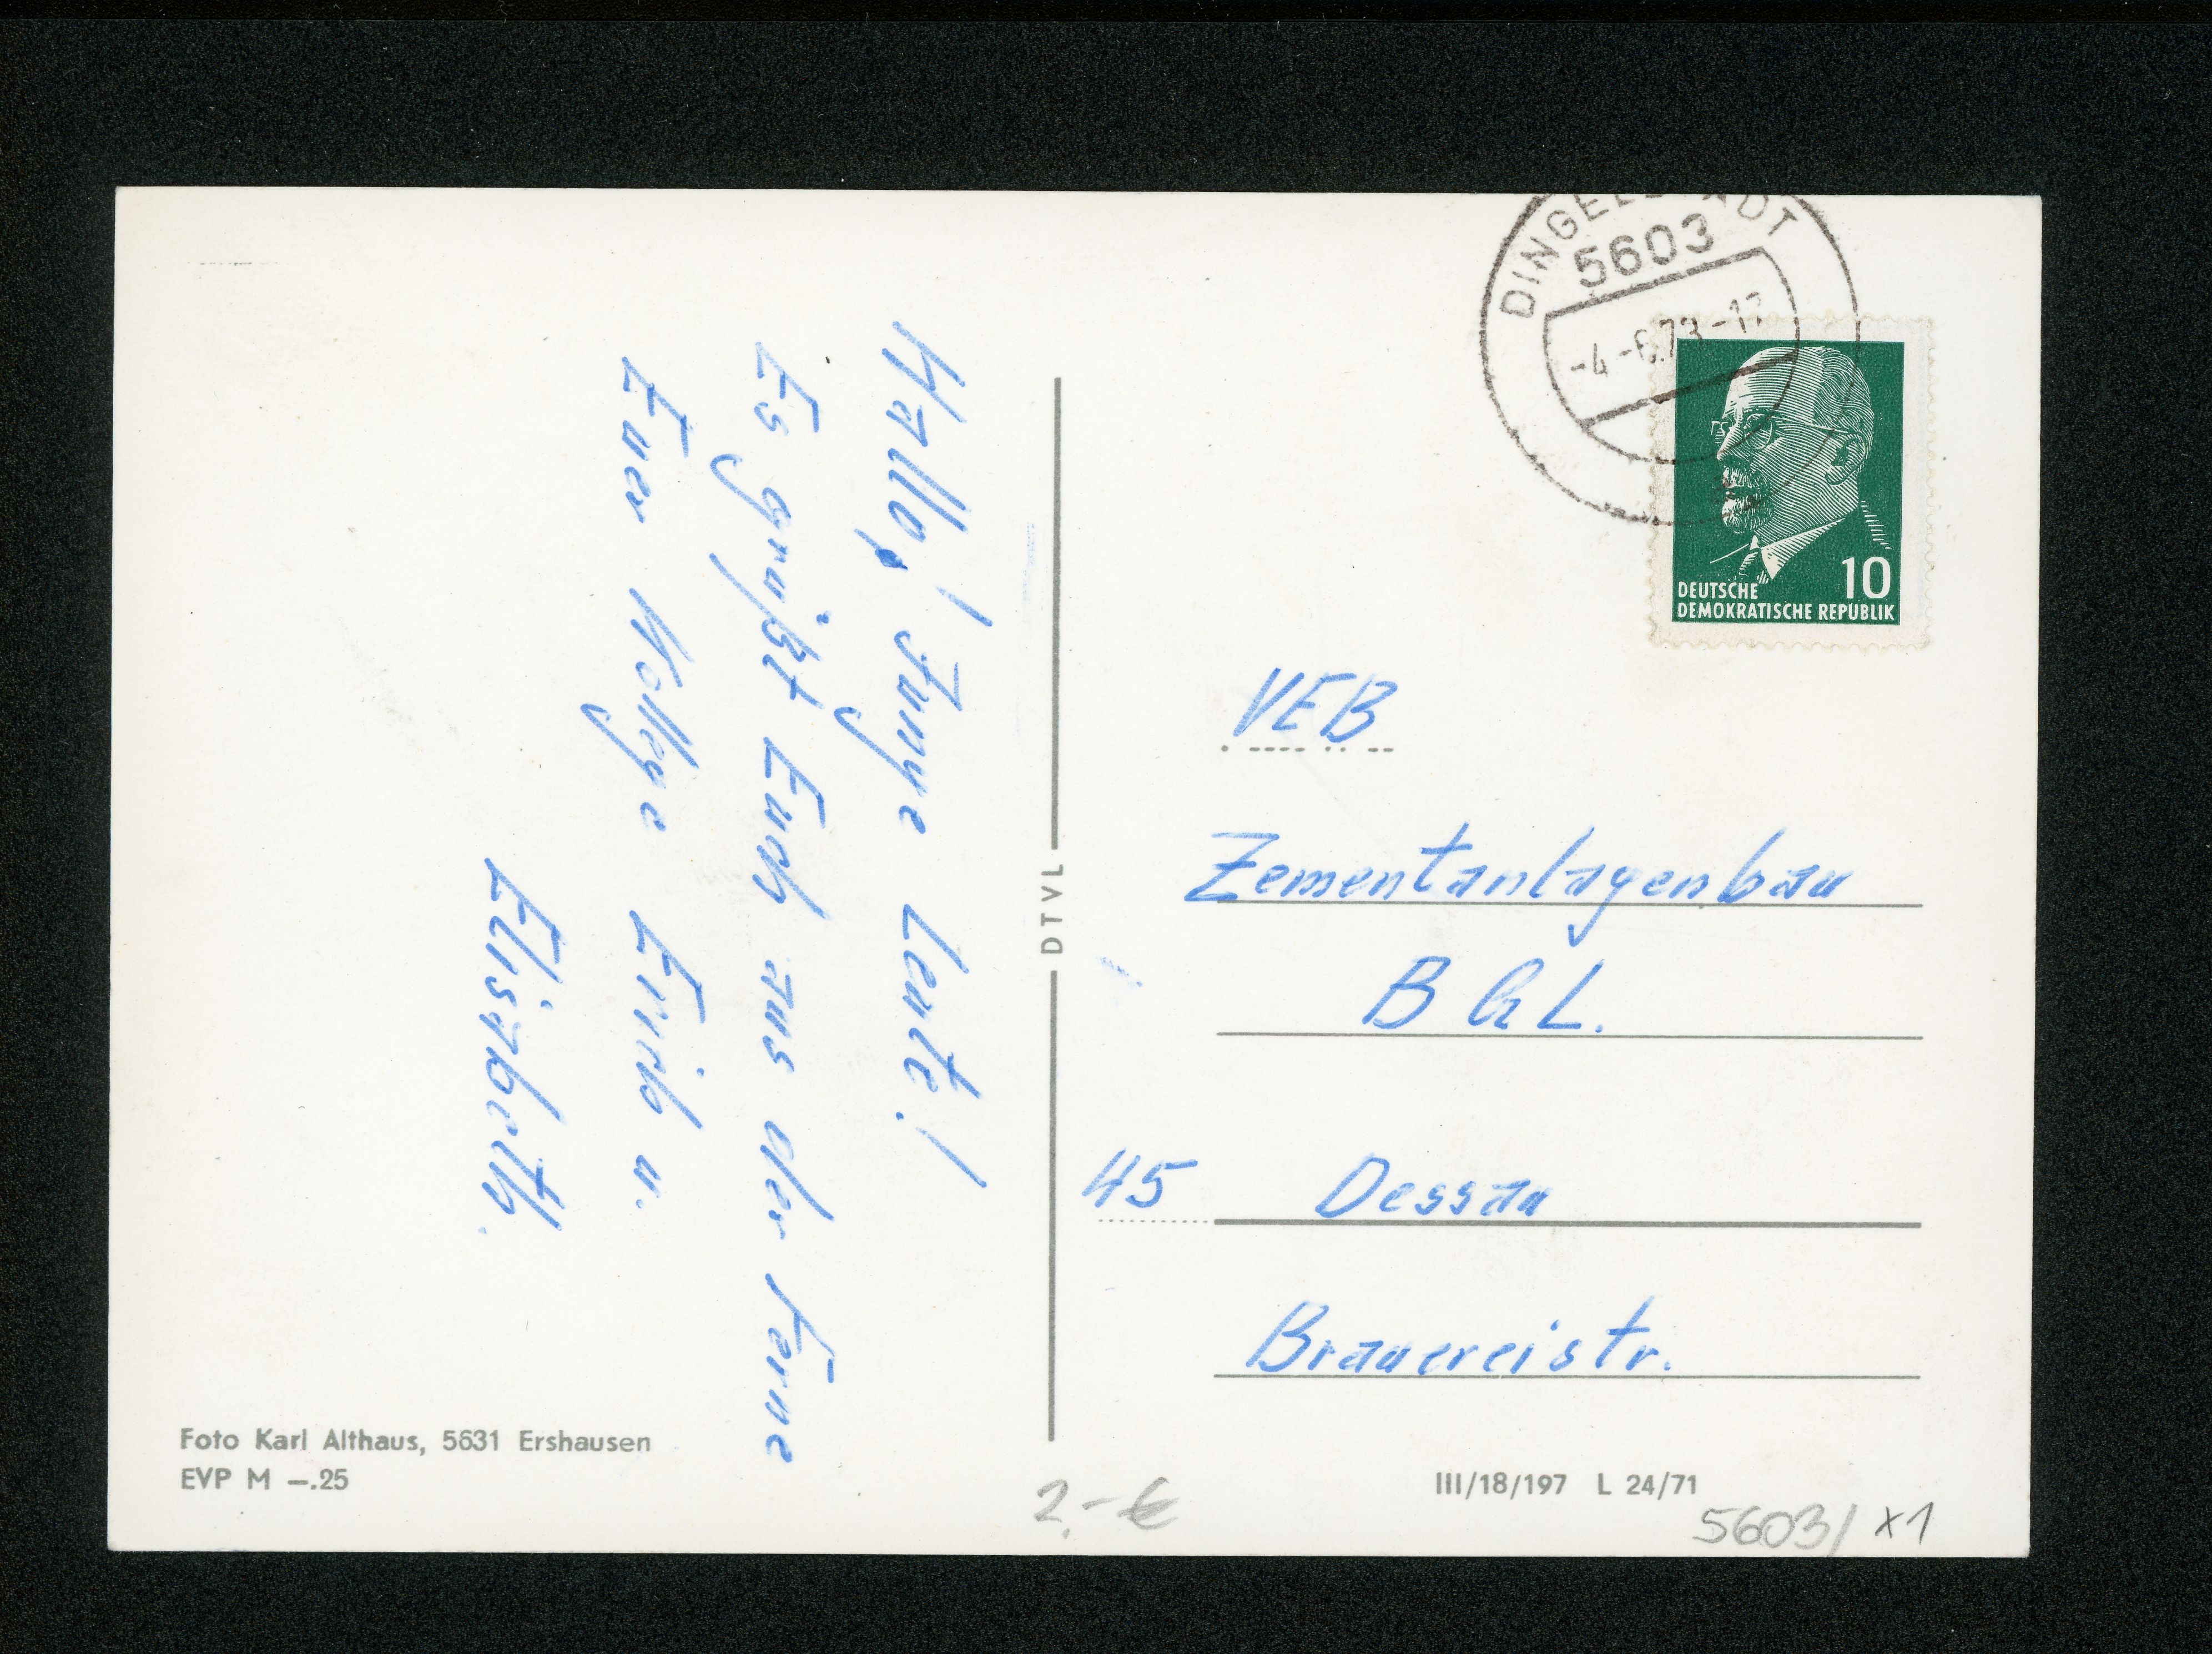 Hallo! Junge Leute!
Es grüßt Euch aus der Ferne
Euer Kollege Erich u.
Elisabeth.
Foto Karl Althaus, 5631 Ershausen
EVP M —.25
DTVL
5603
-4.-6.73-17
10
DEUTSCHE
DEMOKRATISCHE REPUBLIK
VEB
Zementanlagenbau
BGL.
45 Dessau
Brauereistr.
III/18/197 L 24/71
2,- €
5603/ x1